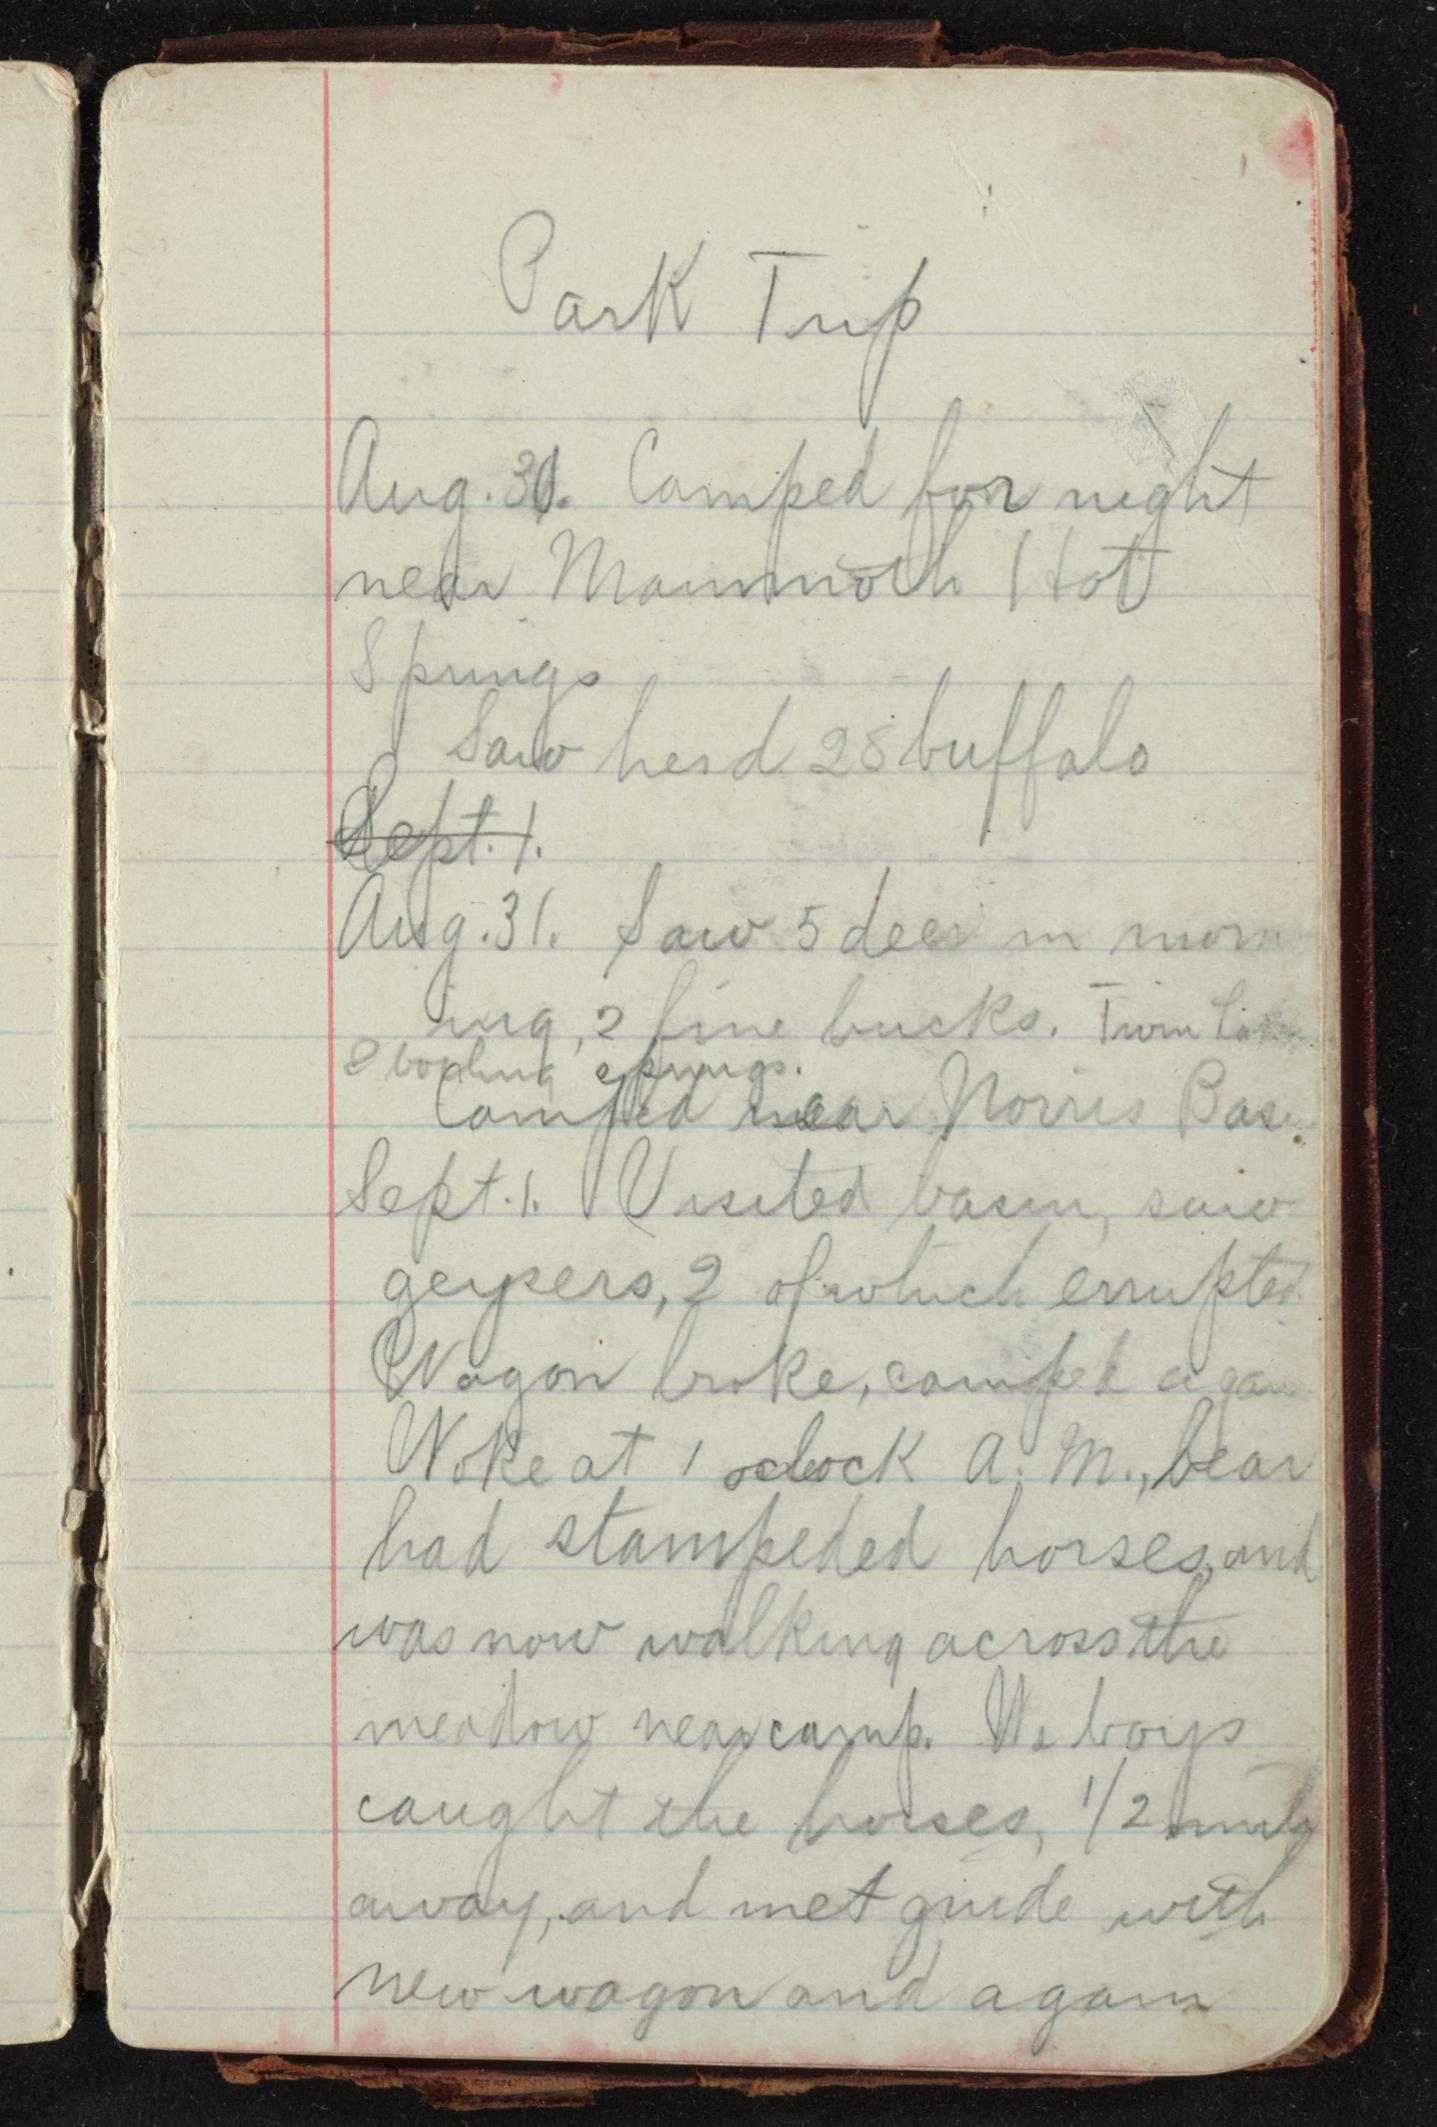 Park Trip
Aug. 30. Camped for night
near Mammoth Hot
Springs
Saw herd 28 buffalo
Sept. 1.
Aug. 31. Saw 5 deer in morn
ing, 2 fine bucks. Twin Lakes
& boiling springs.
Camped near Norris Basin
Sept. 1. Visited basin, saw
geysers, 2 of which errupted.
Wagon broke, camped again
Woke at 1 oclock A. M., bear
had stampeded horses, and
was now walking across the
meadow near camp. We boys
caught the horses, 1/2 mile
away, and met guide with
new wagon and again